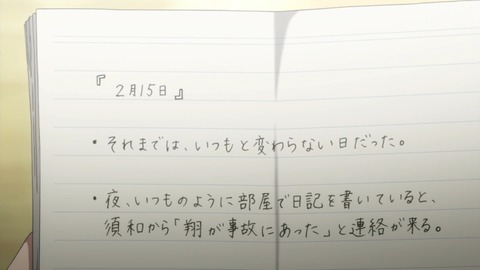 『2月15日』
・それまでは、いつもと変わらない日だった。
・夜、いつものように部屋で日記を書いていると、
須和から「翔が事故にあった」と連絡が来る。